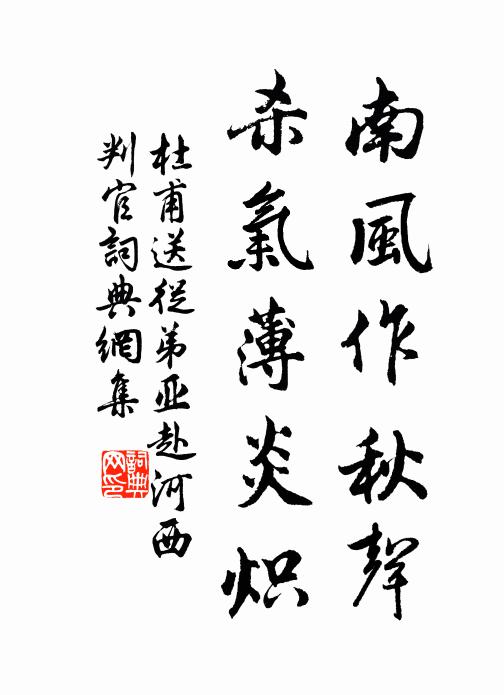 南風作秋聲
杀氣薄炎炽
杜甫送從弟亚赴河西
判官詞典網集
詞典网印